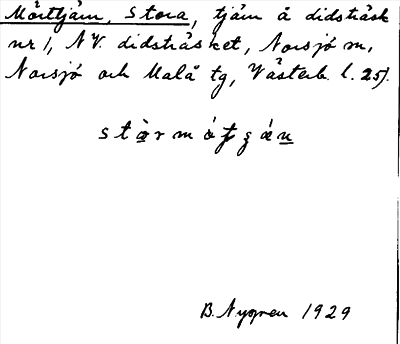 Mörttjärn, Stora, tjärn å Lidsträsk
nr 1, NV. Lidsträsket, Norsjö sn,
Norsjö och Malå tg, Västerb. l. 25).
B. Nygren 1929